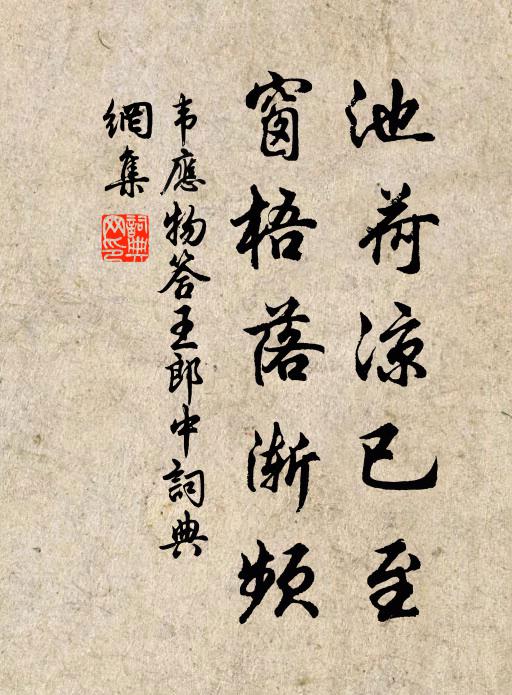 池荷凉已至
窗梧落渐频
韦應物答王郎中詞典
網集
詞典网印